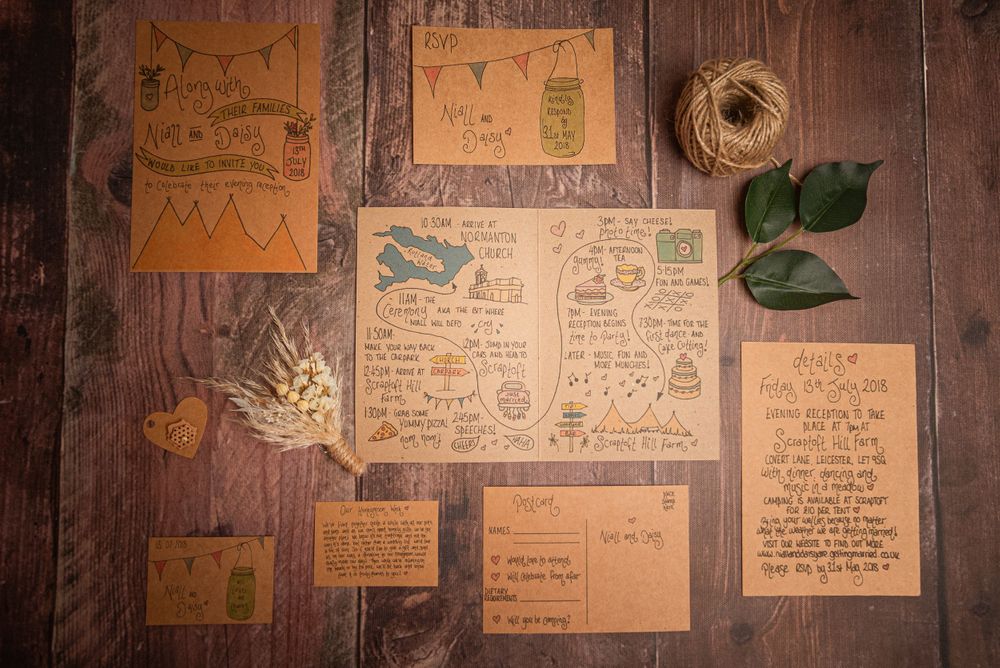 Along with
THEIR FAMILIES
Niall AND Daisy
13TH
JULY
2018
WOULD LIKE TO INVITE YOU
to celebrate their evening reception
RSVP
Niall
and
Daisy
Kindly
RESPOND
by
31st MAY
2018
10.30AM - ARRIVE AT
NORMANTON
CHURCH
Rutland
Water
11AM - THE
Ceremony
AKA THE BIT WHERE
NIALL WILL DEFO
cry
11.50AM
MAKE YOUR WAY BACK
TO THE CARPARK
12PM - JUMP IN YOUR
CARS AND HEAD TO
Scraptoft Hill
CHURCH
CARPARK
12.45PM - ARRIVE AT
Scraptoft Hill
Farm
JUST
MARRIED
1:30PM - GRAB SOME
YUMMY PIZZA!
nom nom!
2.45PM -
SPEECHES!
CHEERS
HAHA
3PM - SAY CHEESE!
photo time!
4PM - AFTERNOON
TEA
yummy!
5:15PM
FUN AND GAMES!
7PM - EVENING
RECEPTION BEGINS
time to Party!
7:30PM - TIME FOR THE
first dance AND
Cake Cutting!
LATER - MUSIC, FUN AND
MORE MUNCHIES!
Scraptoft Hill Farm
details
Friday 13th July 2018
EVENING RECEPTION TO TAKE
PLACE AT 7pm AT
Scraptoft Hill Farm
COVERT LANE, LEICESTER, LE7 9SQ
With dinner, dancing and
music in a meadow
CAMPING IS AVAILABLE AT SCRAPTOFT
FOR £10 PER TENT
Bring your wellies because no matter
what the weather we are getting married!
VISIT OUR WEBSITE TO FIND OUT MORE
www.niallanddaisyare.gettingmarried.co.uk
Please RSVP by 31st May 2018
13.07.2018
Niall and
Daisy
Our Honeymoon Wish
Postcard
PLACE
STAMP
HERE
NAMES
Would love to attend
Will celebrate from afar
DIETARY
REQUIREMENTS
Will you be camping?
Niall and Daisy